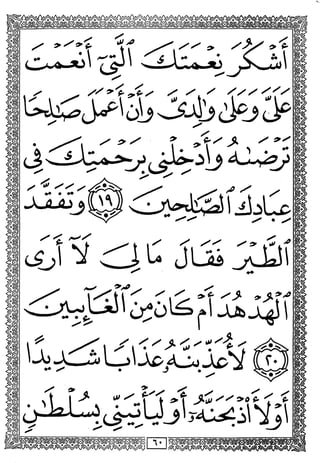 أَشْكُرَ نِعْمَتَكَ ٱلَّتِىٓ أَنْعَمْتَ
عَلَىَّ وَعَلَىٰ وَٰلِدَىَّ وَأَنْ أَعْمَلَ صَٰلِحًا
تَرْضَىٰهُ وَأَدْخِلْنِى بِرَحْمَتِكَ فِى
عِبَادِكَ ٱلصَّٰلِحِينَ ١٩ وَتَفَقَّدَ
ٱلطَّيْرَ فَقَالَ مَا لِىَ لَآ أَرَى
ٱلْهُدْهُدَ أَمْ كَانَ مِنَ ٱلْغَآئِبِينَ
٢٠ لَأُعَذِّبَنَّهُۥ عَذَابًا شَدِيدًا
أَوْ لَأَا۟ذْبَحَنَّهُۥٓ أَوْ لَيَأْتِيَنِّى بِسُلْطَٰنٍ
٦٠